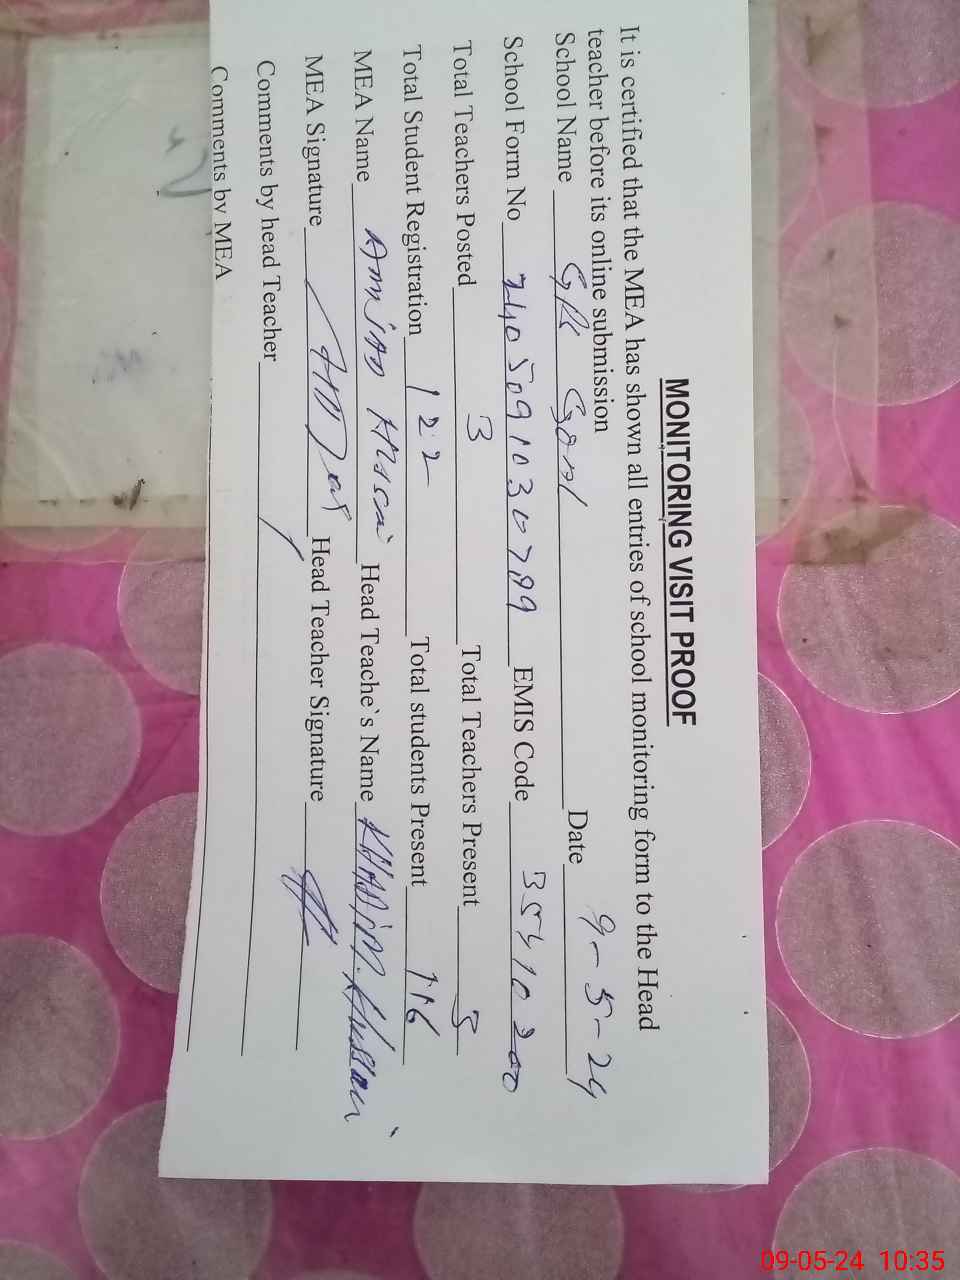 MONITORING VISIT PROOF
It is certified that the MEA has shown all entries of school monitoring form to the Head
teacher before its online submission
School Name Date 9-5-24
School Form No 2405091030789 EMIS Code 35410200
Total Teachers Posted 3 Total Teachers Present 3
Total Student Registration 122 Total students Present 116
MEA Name Head Teache`s Name KHADIM.Hussain
MEA Signature Head Teacher Signature
Comments by head Teacher
Comments by MEA
09-05-24 10:35